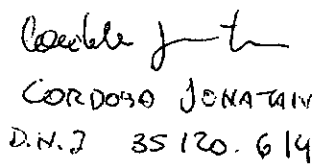 CORDOBO JONATAN
D.N.I 35120.614